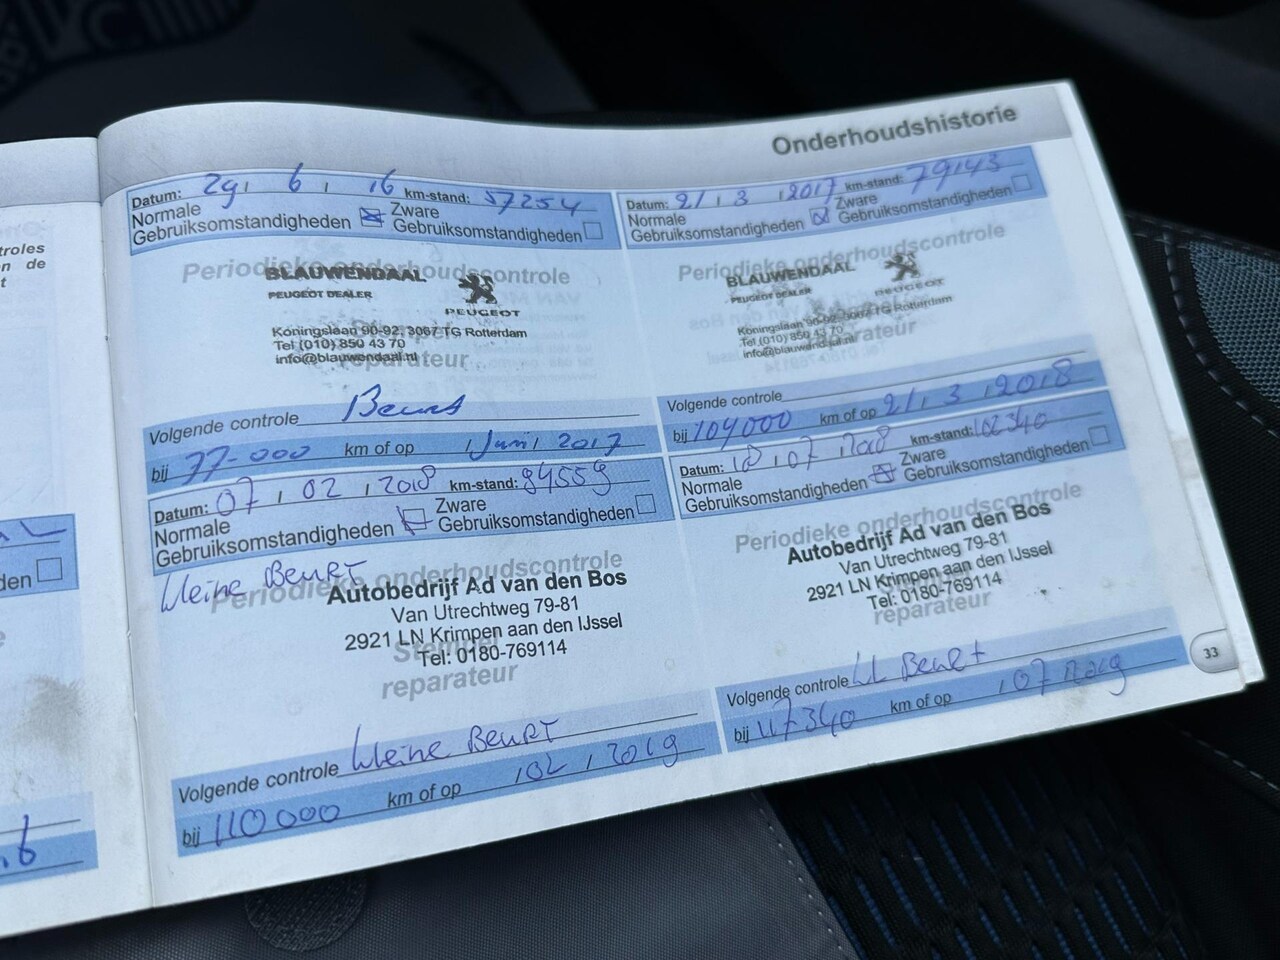 Onderhoudshistorie
Datum: 29, 6, 16 km-stand: 57254
Normale Gebruiksomstandigheden Zware Gebruiksomstandigheden
Periodieke onderhoudscontrole
BLAUWENDAAL
PEUGEOT DEALER
PEUGEOT
Koningslaan 90-92, 3067 TG Rotterdam
Tel (010) 850 43 70
info@blauwendaal.nl
reparateur
Volgende controle Beurt
bij 77-000 km of op 1 Juni, 2017
Datum: 21, 3, 2017 km-stand: 79143
Normale Gebruiksomstandigheden Zware Gebruiksomstandigheden
Periodieke onderhoudscontrole
BLAUWENDAAL
PEUGEOT DEALER
PEUGEOT
Koningslaan 90-92, 3067 TG Rotterdam
Tel (010) 850 43 70
info@blauwendaal.nl
reparateur
Volgende controle
bij 104000 km of op 21, 3, 2018
Datum: 07, 02, 2018 km-stand: 94559
Normale Gebruiksomstandigheden Zware Gebruiksomstandigheden
kleine Beurt
Periodieke onderhoudscontrole
Autobedrijf Ad van den Bos
Van Utrechtweg 79-81
2921 LN Krimpen aan den IJssel
Stempel
Tel: 0180-769114
reparateur
Volgende controle kleine Beurt
bij 110000 km of op , 02, 2019
Datum: 18, 07, 2018 km-stand: 102340
Normale Gebruiksomstandigheden Zware Gebruiksomstandigheden
Periodieke onderhoudscontrole
Autobedrijf Ad van den Bos
Van Utrechtweg 79-81
2921 LN Krimpen aan den IJssel
Tel: 0180-769114
reparateur
Volgende controle kl Beurt
bij 117340 km of op , 07, 2019
33
troles
n de
t
den